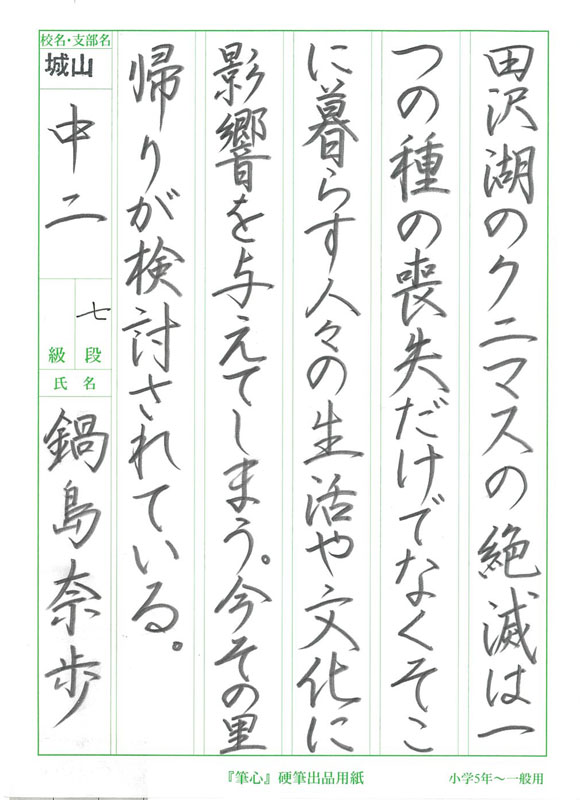 田沢湖のクニマスの絶滅は一
つの種の喪失だけでなくそこ
に暮らす人々の生活や文化に
影響を与えてしまう。今その里
帰りが検討されている。
校名・支部名
城山
中二
七
段
級
氏名
鍋島奈歩
『筆心』硬筆出品用紙
小学5年〜一般用